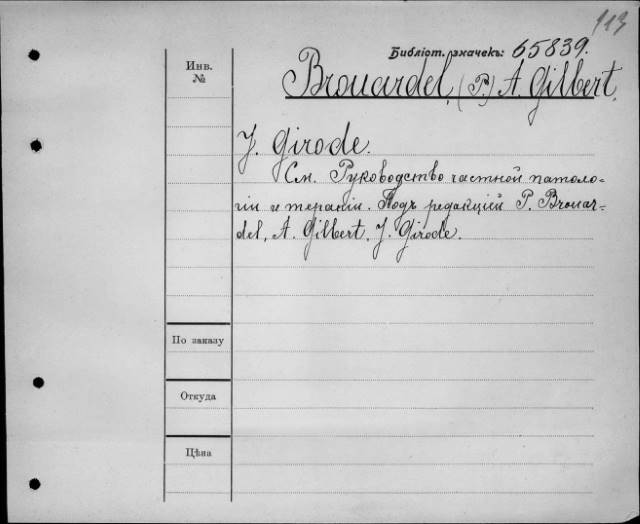 113
Библіот. значекъ: 65839.
Инв.
№
Brouardel, (P.) A. Gilbert,
J. Girode.
См. Руководство частной патоло-
гіи и терапіи. Подъ редакціей P. Brouar-
del, A. Gilbert, J. Girode.
По заказу
Откуда
Цѣна